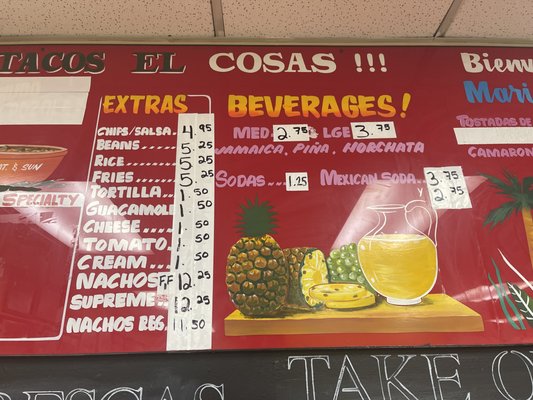 TACOS EL COSAS !!!
Bienv
Mari
TOSTADAS DE
CAMARON
SPECIALTY
EXTRAS
CHIPS/SALSA.. 4.95
BEANS..... 5.25
RICE..... 5.25
FRIES..... 5.25
TORTILLA... 1.50
GUACAMOLE 1.50
CHEESE.... 1.50
TOMATO... 1.50
CREAM.... 1.50
NACHOS FF 12.25
SUPREME... 12.25
NACHOS REG. 11.50
BEVERAGES!
MED. 2.75 LGE 3.75
JAMAICA, PIÑA, HORCHATA
SODAS.... 1.25 MEXICAN SODA.. 3.75
2.75
FRESCAS
TAKE O